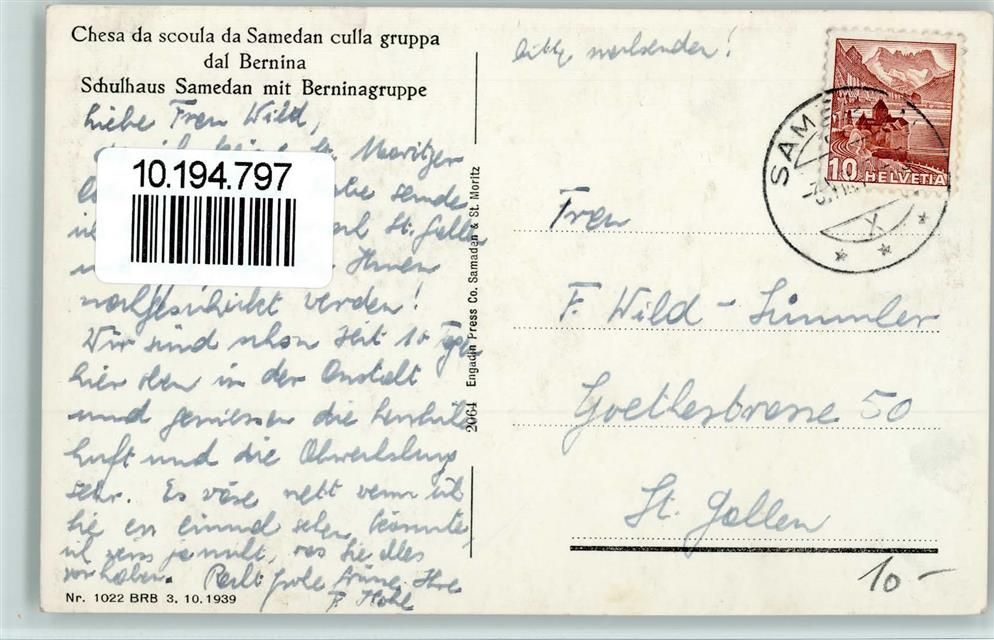 Chesa da scoula da Samedan culla gruppa
dal Bernina
Schulhaus Samedan mit Berninagruppe
Liebe Frau Wild,
St. Moritzer
10.194.797
sende
St. Gallen
Ihnen
nachgeschickt werden!
Wir sind schon seit 10 Tagen
hier oben in der Anstalt
und geniessen die herrliche
Luft und die Abwechslung
sehr. Es wäre nett wenn ich
Sie einmal sehen könnte
ich weiss ja nicht, was Sie alles
vorhaben. Recht frohe Grüsse Ihre
F. Hohl
Nr. 1022 BRB 3. 10. 1939
2064 Engadin Press Co. Samaden & St. Moritz
bitte nachsenden!
10 HELVETIA
SAM
Frau
F. Wild-Simmler
Goethestrasse 50
St. Gallen
10-